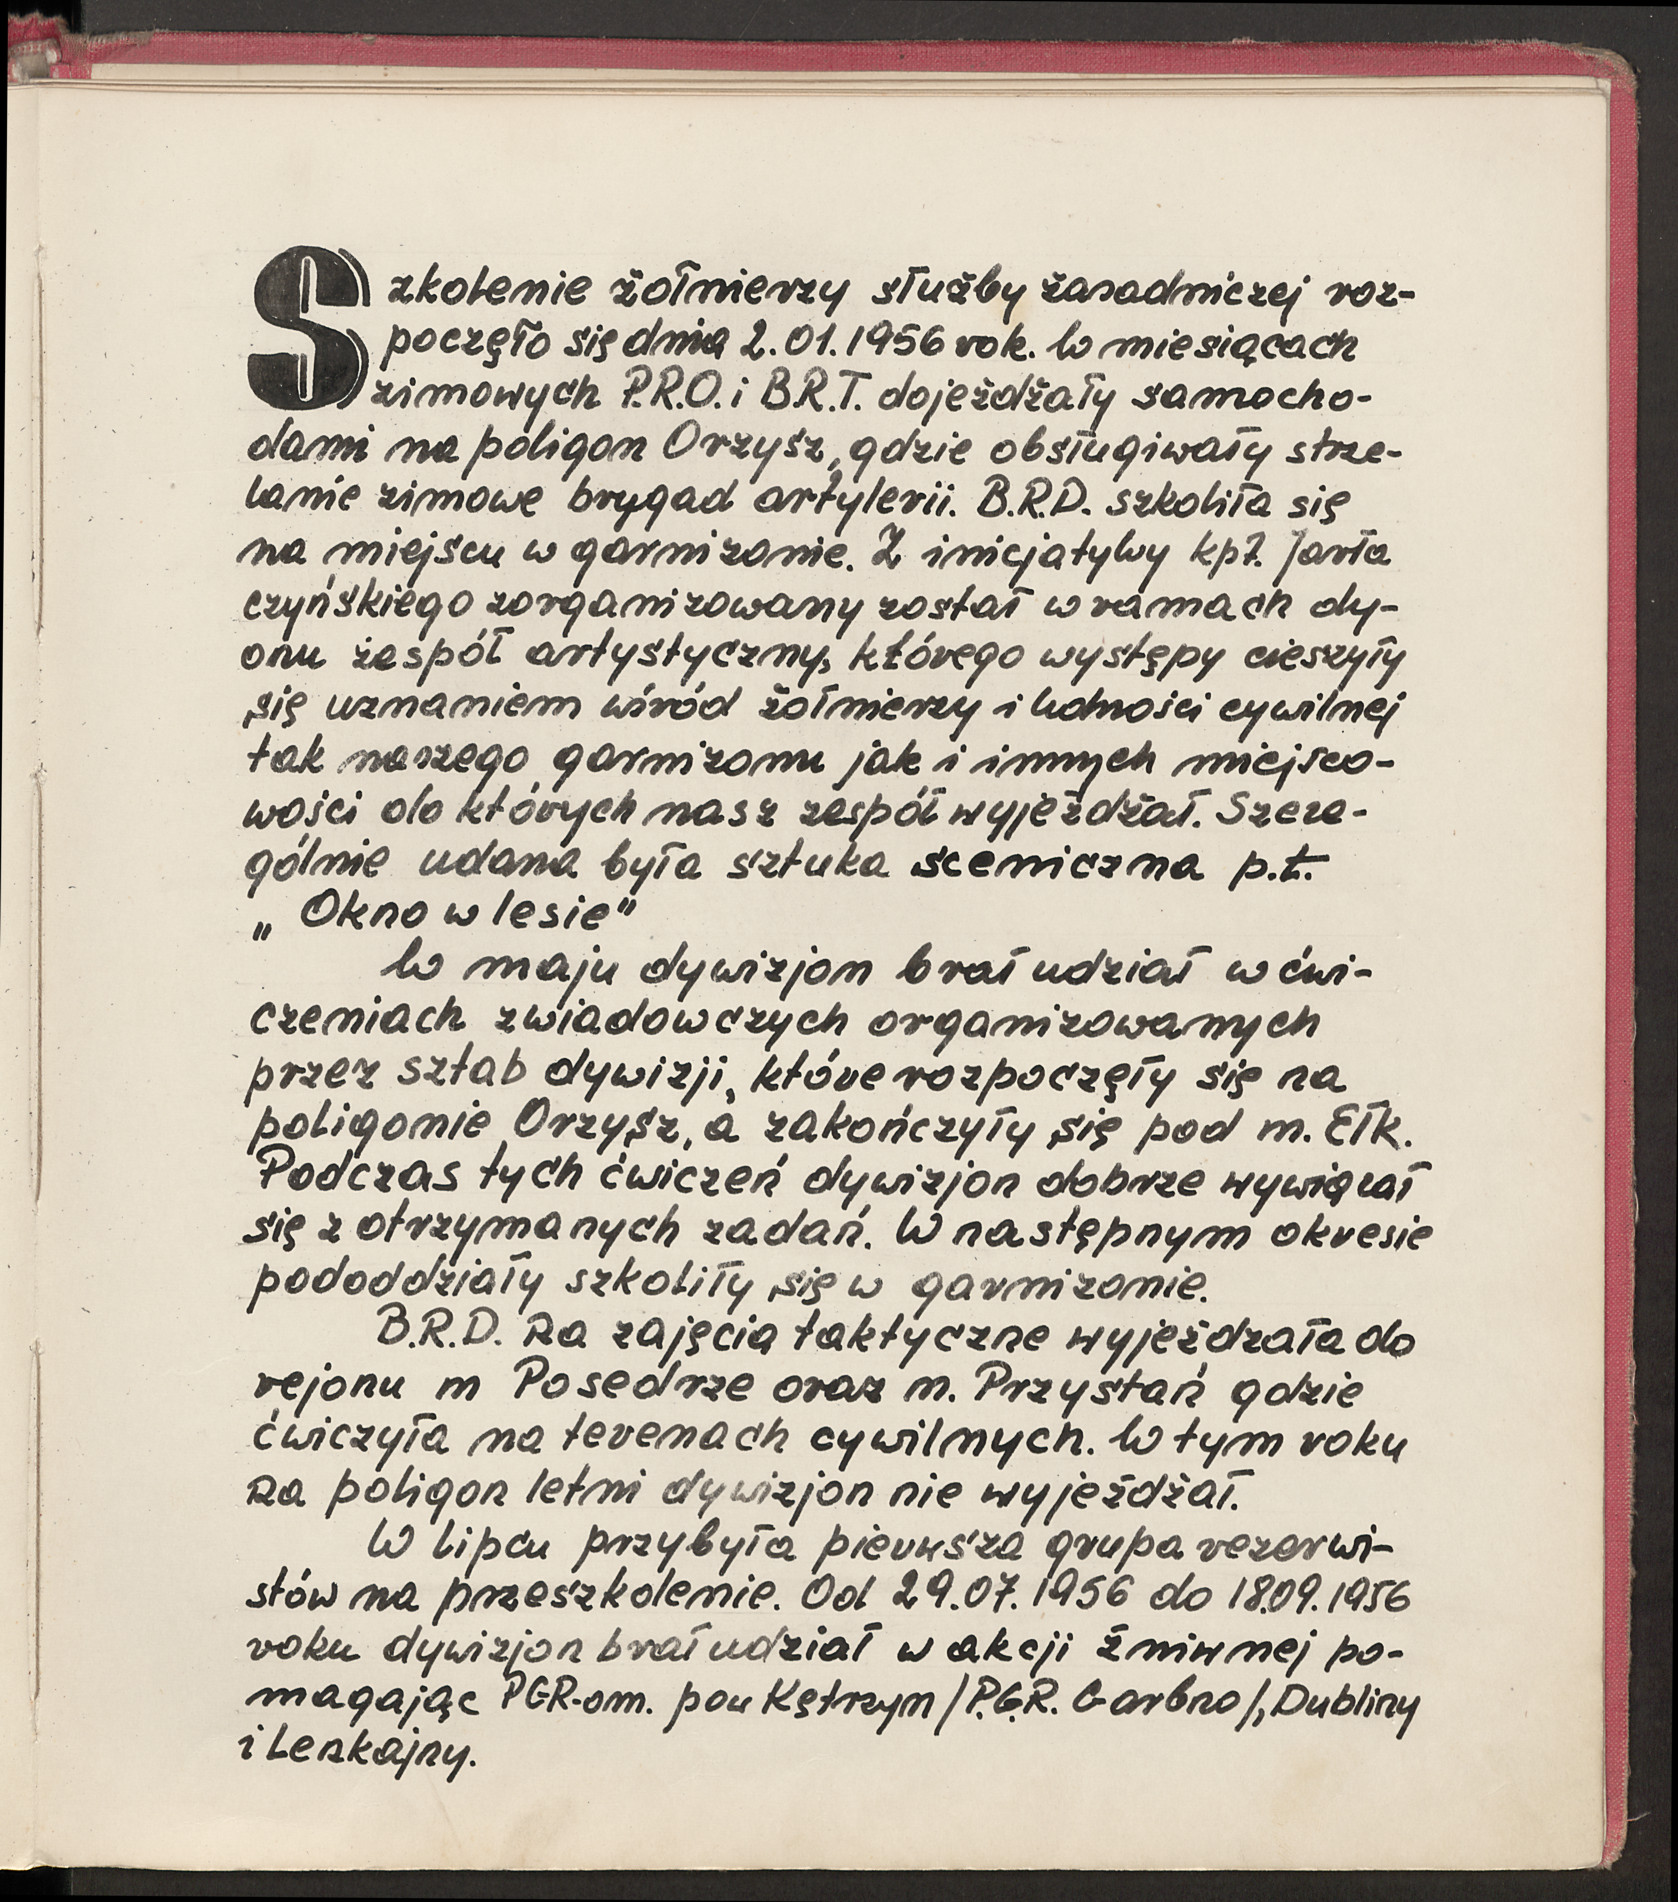 Szkolenie żołnierzy służby zasadniczej roz-
poczęło się dnia 2.01.1956 rok. W miesiącach
zimowych P.R.O. i B.R.T. dojeżdżały samocho-
dami na poligon Orzysz, gdzie obsługiwały strze-
lanie zimowe brygad artylerii. B.R.D. szkoliła się
na miejscu w garnizonie. Z inicjatywy kpt. Jarła
czyńskiego zorganizowany został w ramach dy-
onu zespół artystyczny, którego występy cieszyły
się uznaniem wśród żołnierzy i ludności cywilnej
tak naszego garnizonu jak i innych miejsco-
wości do których nasz zespół wyjeżdżał. Szcze-
gólnie udana była sztuka sceniczna p.t.
„Okno w lesie"
W maju dywizjon brał udział w ćwi-
czeniach zwiadowczych organizowanych
przez sztab dywizji, które rozpoczęły się na
poligonie Orzysz, a zakończyły się pod m. Ełk.
Podczas tych ćwiczeń dywizjon dobrze wywiązał
się z otrzymanych zadań. W następnym okresie
pododdziały szkoliły się w garnizonie.
B.R.D. na zajęcia taktyczne wyjeżdzała do
rejonu m Posedrze oraz m. Przystań gdzie
ćwiczyła na terenach cywilnych. W tym roku
na poligon letni dywizjon nie wyjeżdżał.
W lipcu przybyła pierwsza grupa rezerwi-
stów na przeszkolenie. Od 29.07.1956 do 18.09.1956
roku dywizjon brał udział w akcji żniwnej po-
magając PGR-om. pow Kętrzyn /P.G.R. Garbno/, Dubliny
i Lenkajny.